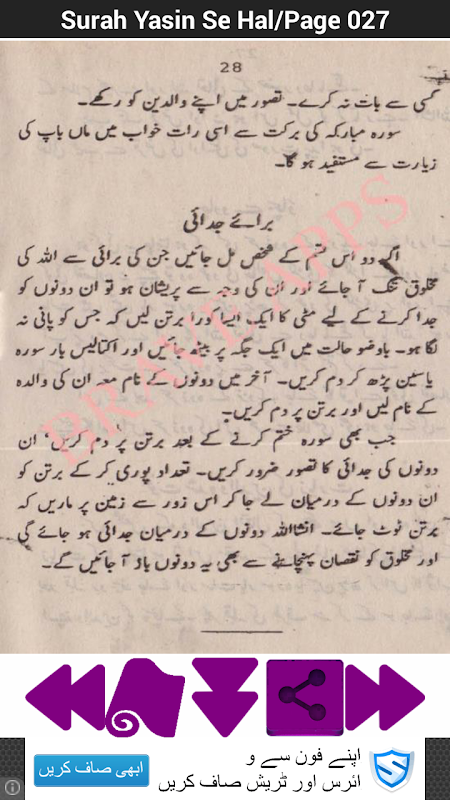 Surah Yasin Se Hal/Page 027
28
کسی سے بات نہ کرے۔ تصور میں اپنے والدین کو رکھے۔
سورہ مبارکہ کی برکت سے اسی رات خواب میں ماں باپ کی
زیارت سے مستفید ہو گا۔
برائے جدائی
اگر دو اس قسم کے شخص مل جائیں جن کی برائی سے اللہ کی
مخلوق تنگ آ جائے اور ان کی وجہ سے پریشان ہو تو ان دونوں کو
جدا کرنے کے لیے مٹی کا ایک ایسا کورا برتن لیں کہ جس کو پانی نہ
لگا ہو۔ باوضو حالت میں ایک جگہ پر بیٹھ جائیں اور اکتالیس بار سورہ
یاسین پڑھ کر دم کریں۔ آخر میں دونوں کے نام معہ ان کی والدہ
کے نام لیں اور برتن پر دم کریں۔
جب بھی سورہ ختم کرنے کے بعد برتن پر دم کریں ان
دونوں کی جدائی کا تصور ضرور کریں۔ تعداد پوری کر کے برتن کو
ان دونوں کے درمیان لے جا کر اس زور سے زمین پر ماریں کہ
برتن ٹوٹ جائے۔ انشااللہ دونوں کے درمیان جدائی ہو جائے گی
اور مخلوق کو نقصان پہنچانے سے بھی یہ دونوں باز آ جائیں گے۔
BRAVE APPS
اپنے فون سے و
ائرس اور ٹریش صاف کریں
ابھی صاف کریں